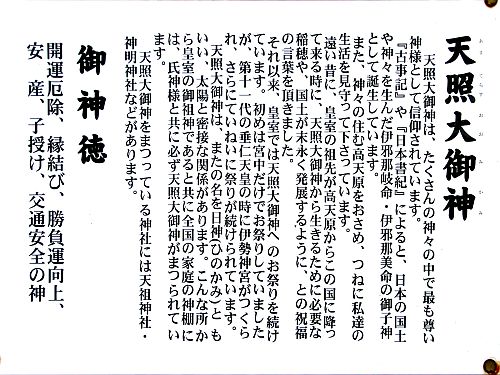 天照大御神
あまてらすおおみかみ
天照大御神は、たくさんの神々の中で最も尊い
神様として信仰されています。
『古事記』や『日本書紀』によると、日本の国土
や神々を生んだ伊邪那岐命・伊邪那美命の御子神
として誕生しています。
また、神々の住む高天原をおさめ、つねに私達の
生活を見守って下さっています。
遠い昔に、皇室の祖先が高天原からこの国に降っ
て来る時に、天照大御神から生きるために必要な
稲穂や、国土が末永く発展するように、との祝福
の言葉を頂きました。
それ以来、皇室では天照大御神へのお祭りを続け
ています。初めは宮中だけでお祭りしていました
が、第十一代の垂仁天皇の時に伊勢神宮がつくら
れ、さらにていねいに祭りが続けられています。
天照大御神は、またの名を日神(ひのかみ)とも
いい、太陽と密接な関係があります。こんな所か
ら皇室の御祖神であると共に全国の家庭の神棚に
は、氏神様と共に必ず天照大御神がまつられてい
ます。
天照大御神をまつっている神社には天祖神社・
神明神社などがあります。
御神徳
開運厄除、縁結び、勝負運向上、
安産、子授け、交通安全の神